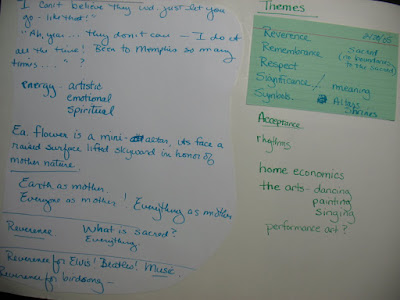 I can't believe they wd. just let you
go - like that!"
"Ah, yea... they don't care — I do it
all the time! Been to Memphis so many
times...." ?
energy - artistic
emotional
spiritual
Ea. flower is a mini- altar, its face a
raised surface lifted skyward in honor of
mother nature.
Earth as mother.
Everyone as mother! Everything as mother
Reverence What is sacred?
Everything.
Reverence for Elvis! Beatles! Music.
Reverence for birdsong —
Themes
Reverence
Remembrance Sacred
Respect (no boundaries
to the sacred)
Significance / meaning
Symbols Altars
Shrines
Acceptance
rhythms
home economics
the arts - dancing
painting
singing
performance art?